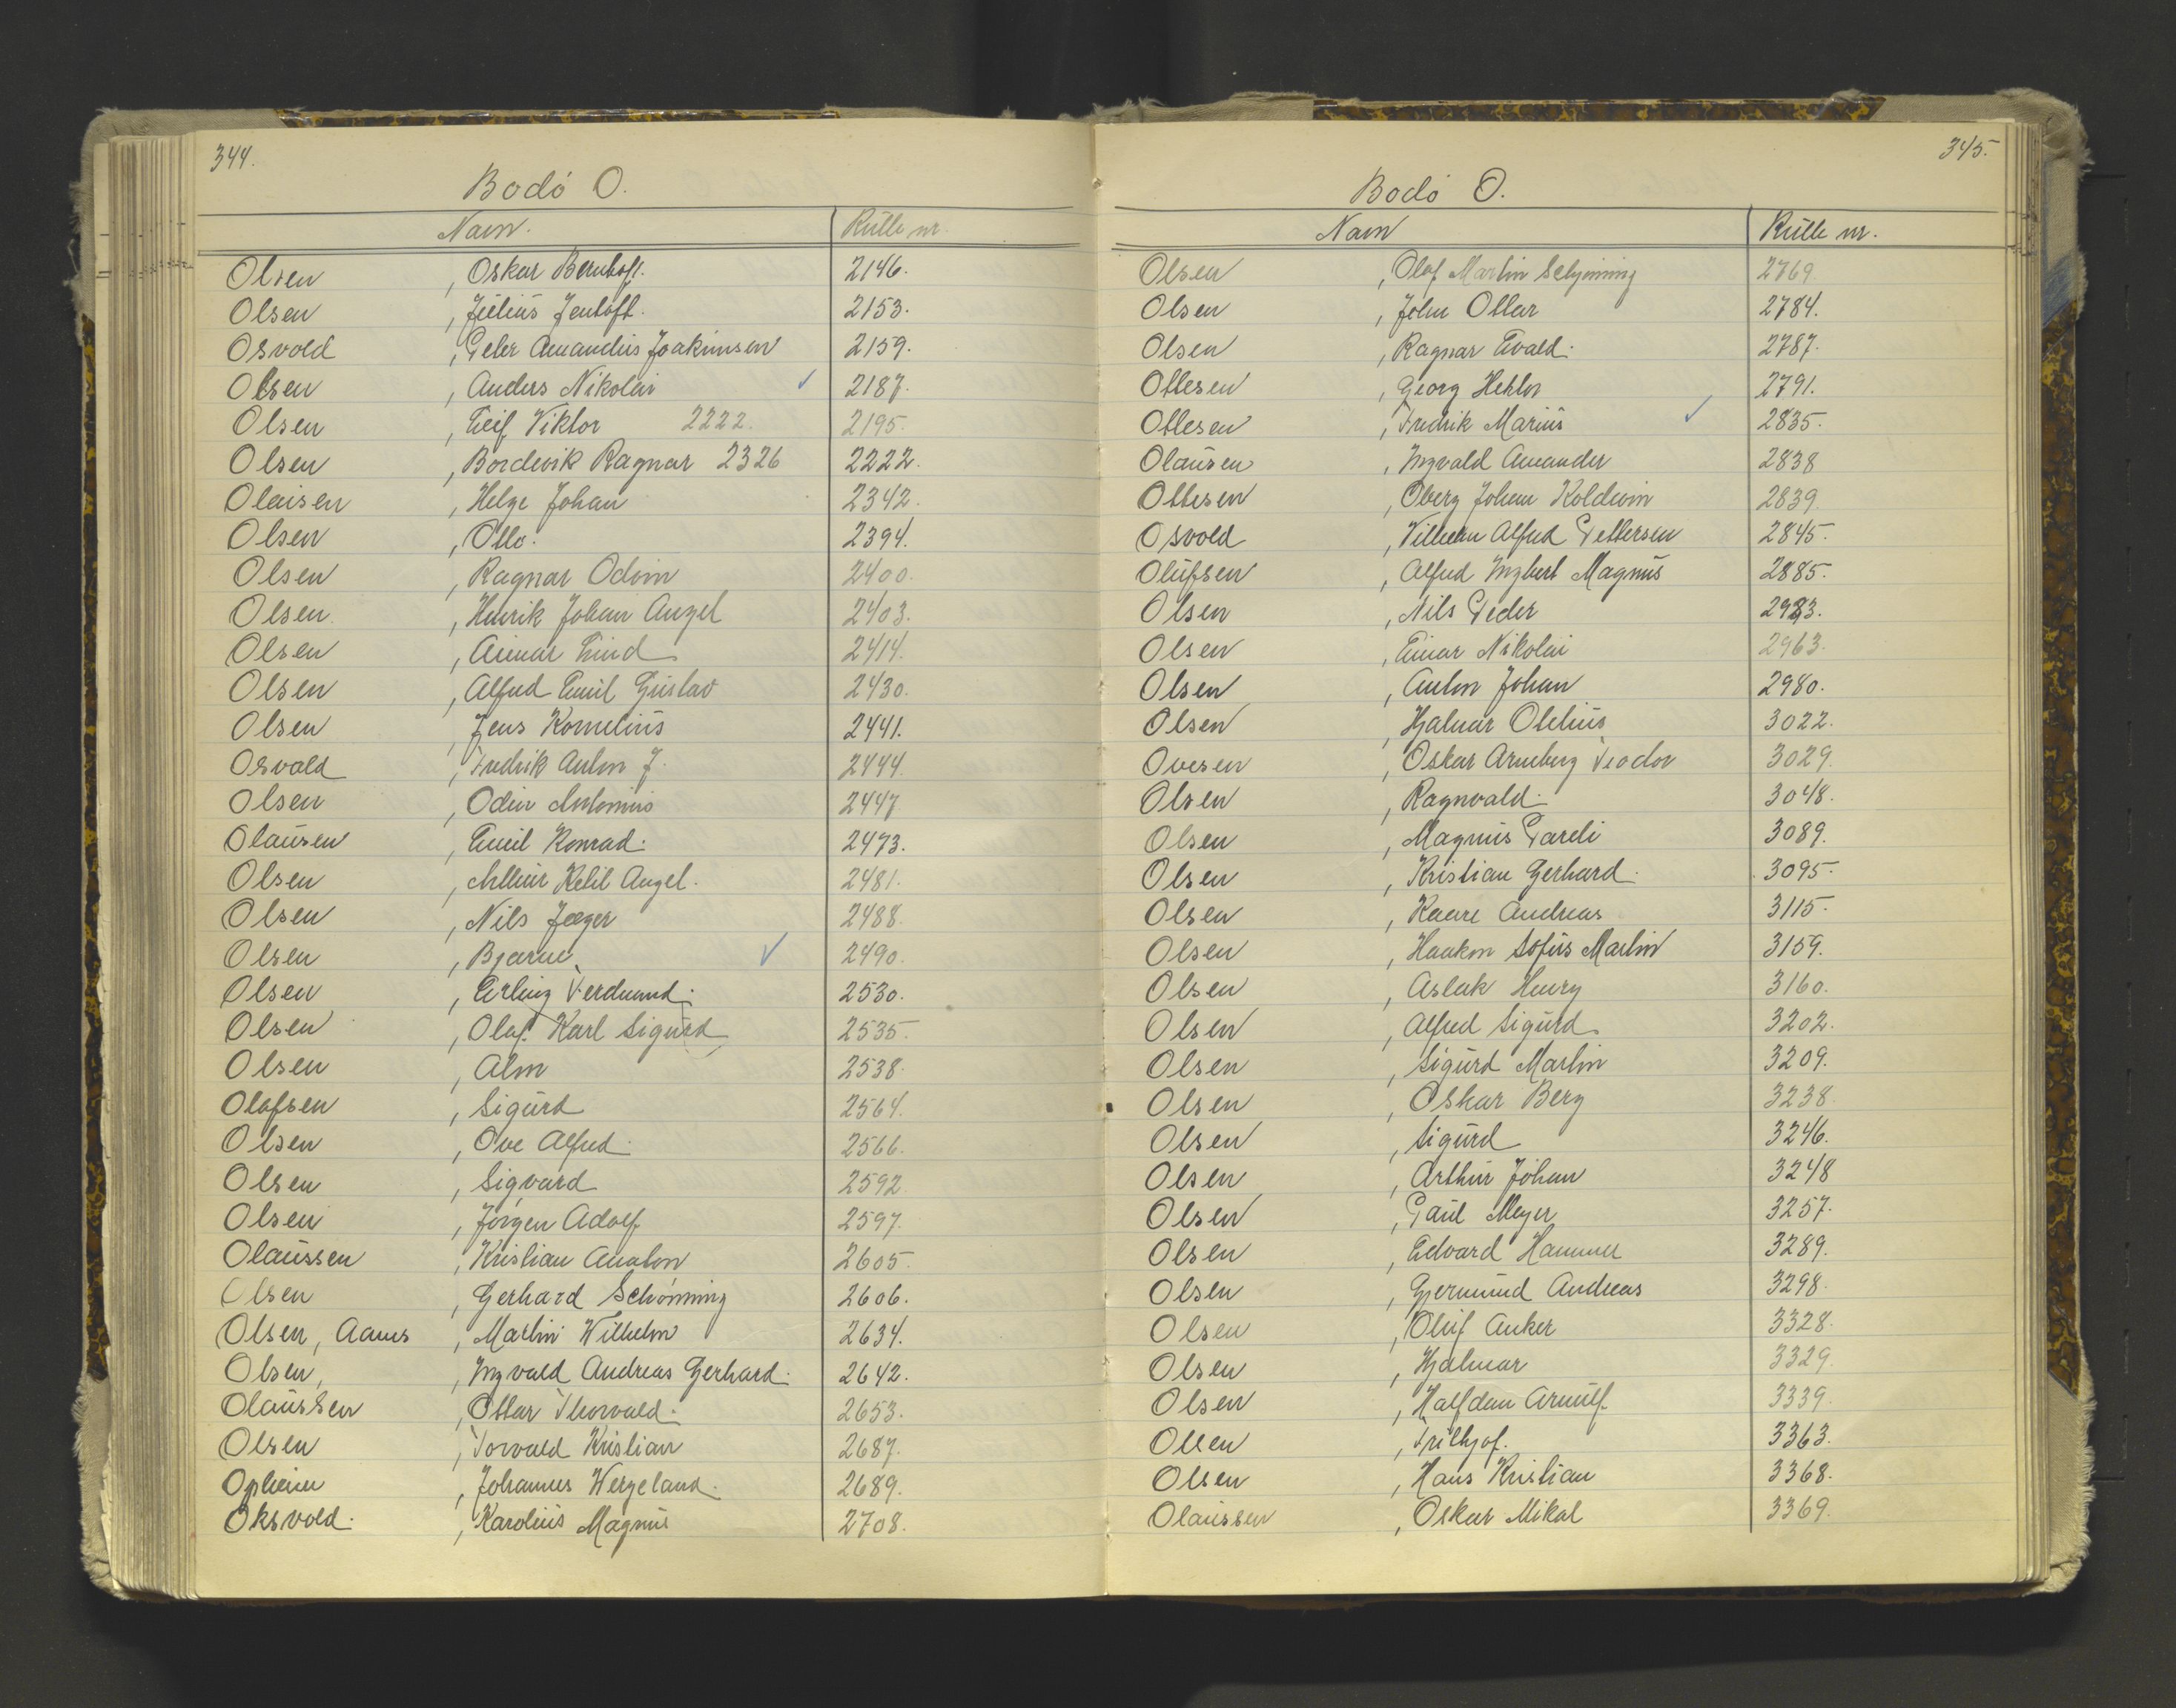 344.
Bodó O.
Navn. Rulle nr.
Olsen , Oskar Berntoft. 2146.
Olsen , Julius Jentoft. 2153.
Osvold , Peter Amandus Joakimsen 2159.
Olsen , Anders Nikolai ✓ 2187.
Olsen , Leif Viktor 2222. 2195.
Olsen , Bordevik Ragnar 2326 2222.
Olaisen , Helge Johan 2342.
Olsen , Otto. 2394.
Olsen , Ragnar Odoin 2400.
Olsen , Henrik Johan Angel 2403.
Olsen , Aimar Lind 2414.
Olsen , Alfred Emil Gustav 2430.
Olsen , Jens Kornelius 2441.
Osvald , Fredrik Anton J. 2444.
Olsen , Odin Antonius 2447
Olausen , Emil Konrad. 2473.
Olsen , Ketil Angel. 2481.
Olsen , Nils Jæger 2488.
Olsen , Bjarne ✓ 2490.
Olsen , Erling Verdinand. 2530.
Olsen , Olaf Karl Sigurd 2535.
Olsen , Alm 2538.
Olofsen , Sigurd 2564.
Olsen , Ove Alfred. 2566.
Olsen , Sigvard 2592.
Olsen , Jorgen Adolf 2597.
Olaussen , Kristian Anaton 2605.
Olsen , Gerhard Schönning 2606.
Olsen, Aanes , Martin Wilhelm 2634.
Olsen, , Ingvald Andreas Gerhard. 2642.
Olaussen , Ottar Thorvald. 2653.
Olsen , Torvald Kristian 2687.
Opheim , Johannes Wergeland. 2689.
Oksvold. , Karolius Magnus 2708.
345.
Bodó O.
Navn Rulle nr.
Olsen , Olaf Martin Schjonning 2769
Olsen , John Ottar 2784.
Olsen , Ragnar Evald. 2787.
Ottesen , Georg Hektor 2791.
Ottesen , Fredrik Marius ✓ 2835.
Olausen , Ingvald Amander 2838
Ottesen , Oberg Johan Koldevin 2839.
Osvold , Vilhelm Alfred Pettersen 2845.
Olufsen , Alfred Ingbert Magnus 2885.
Olsen , Nils Peder
Olsen , Einar Nikolai 2963.
Olsen , Anton Johan 2980.
Olsen , Hjalmar Otelius 3022.
Ovesen , Oskar Arneberg Teodor 3029.
Olsen , Ragnvald. 3048.
Olsen , Magnus Pareli 3089.
Olsen , Kristian Gerhard. 3095.
Olsen , Kaare Andreas 3115.
Olsen , Haakon Sofus Martin 3159.
Olsen , Aslak Henry 3160.
Olsen , Alfred Sigurd 3202.
Olsen , Sigurd Martin 3209.
Olsen , Oskar Berg 3238.
Olsen , Sigurd 3246.
Olsen , Arthur Johan 3248
Olsen , Paul Meyer 3257.
Olsen , Edvard Hammer 3289.
Olsen , Gjermund Andreas 3298.
Olsen , Oluf Anker 3328.
Olsen , Hjalmar 3329.
Olsen , Halfdan Arnulf 3339.
Olsen , Frithjof. 3363.
Olsen , Hans Kristian 3368.
Olaussen , Oskar Mikal 3369.